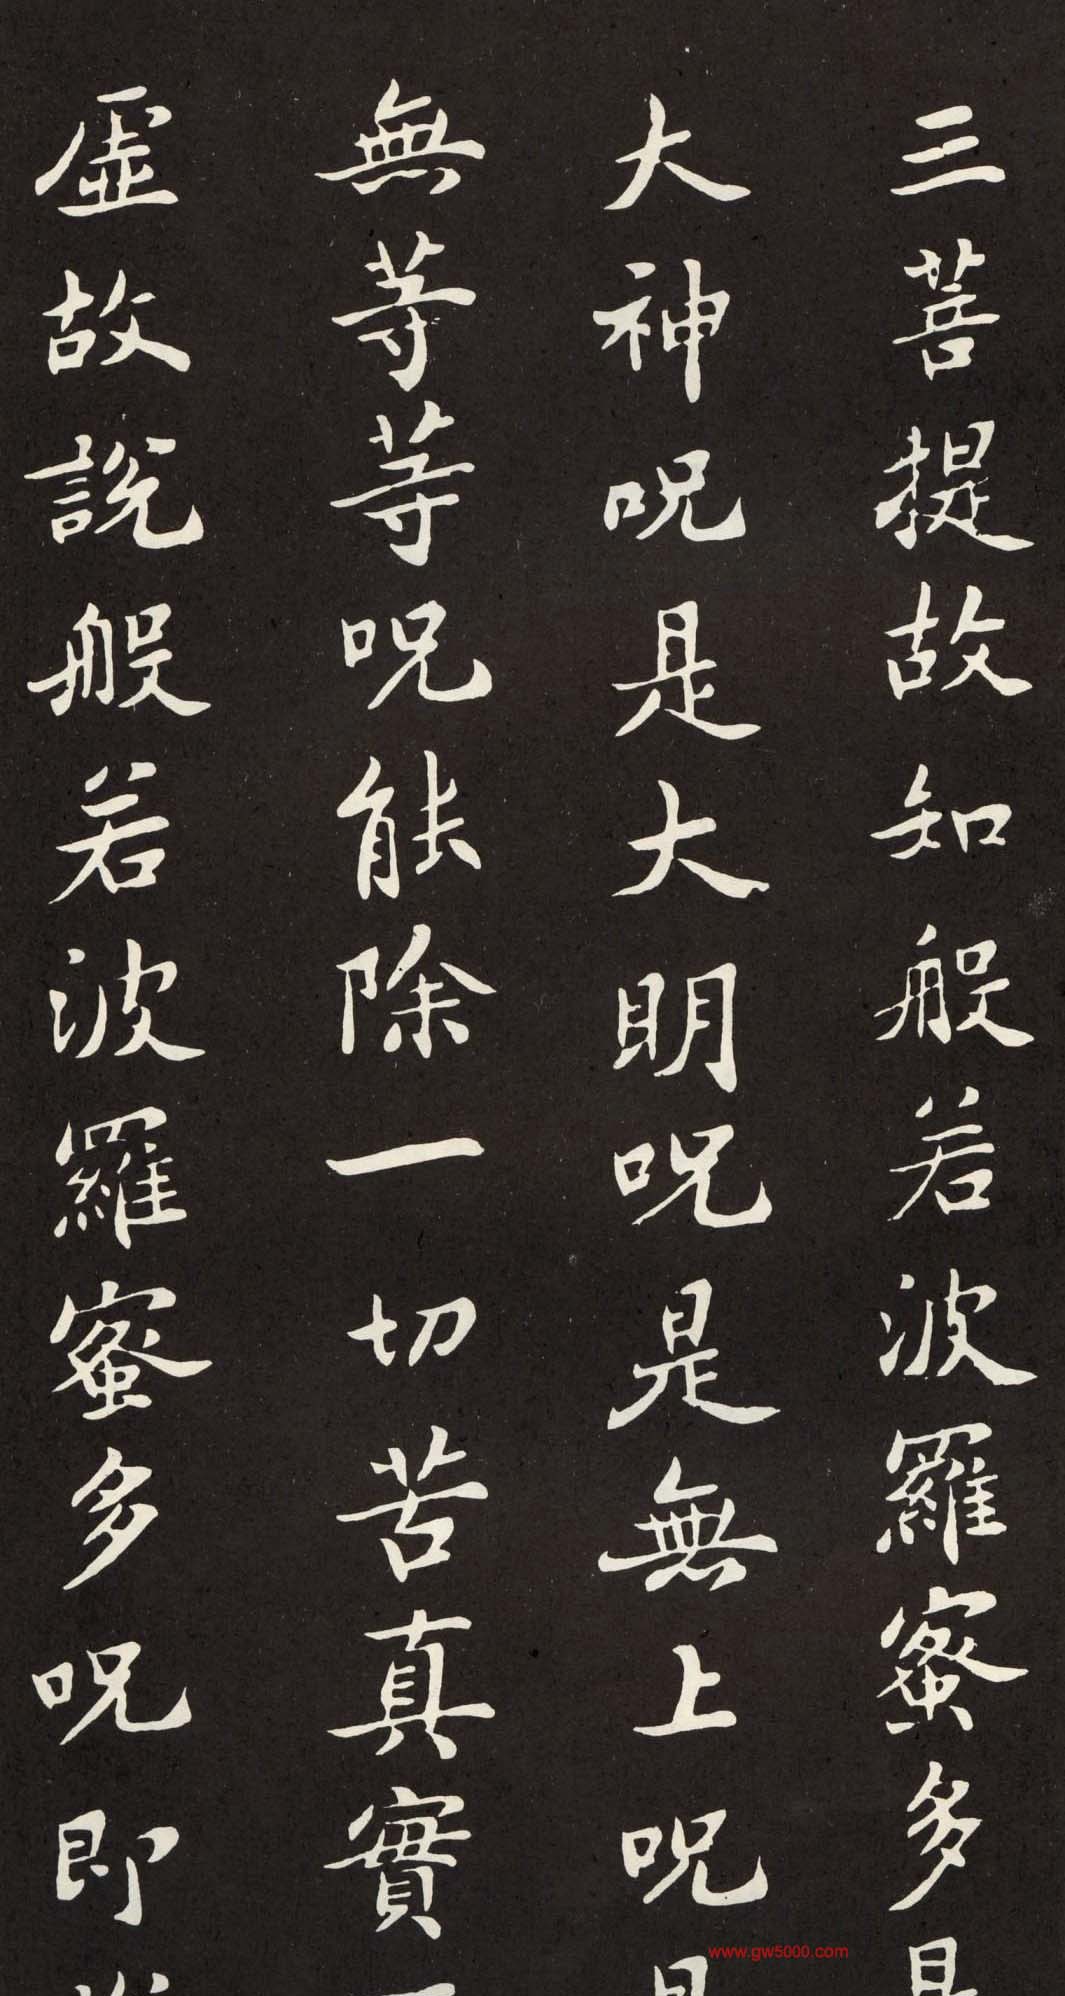 三菩提故知般若波羅蜜多是
大神呪是大明呪是無上呪是
無等等呪能除一切苦真實
虛故說般若波羅蜜多呪即
www.gw5000.com